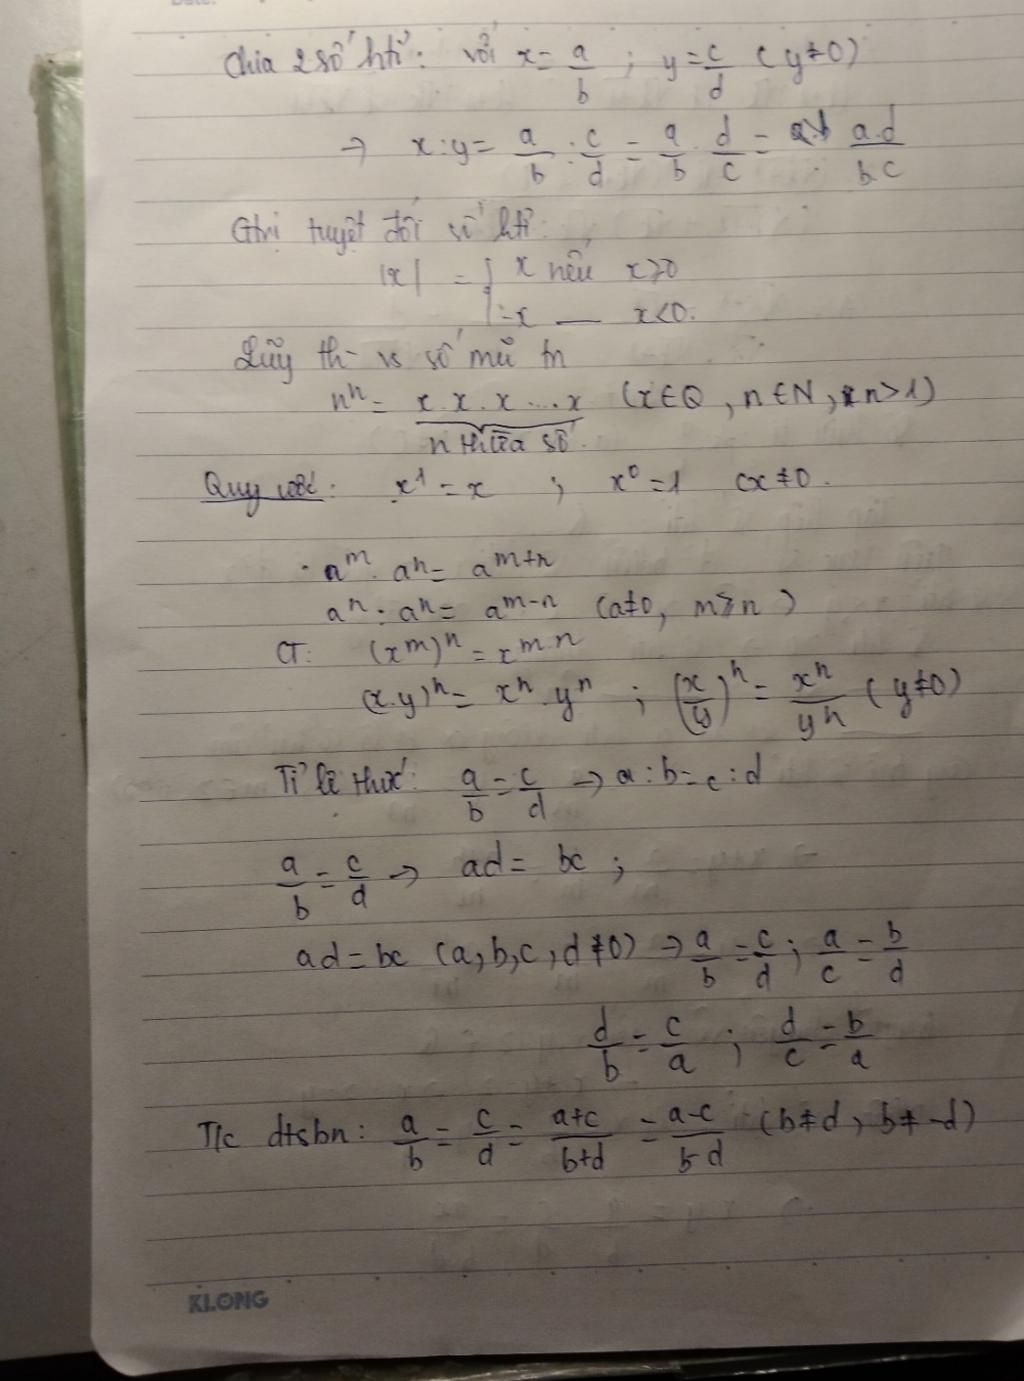 Chia 2 số htỉ: với x = a/b ; y = c/d (y ≠ 0)
→ x : y = a/b : c/d = a/b . d/c = a.d/b.c
Gtrị tuyệt đối số htỉ:
|x| = { x nếu x ≥ 0
{ -x — x < 0.
Lũy th- vs số mũ tn
n^n = x.x.x...x (x ∈ Q, n ∈ N, n > 1)
n thừa số.
Quy ước: x^1 = x ; x^0 = 1 (x ≠ 0.
. a^m . a^n = a^m+n
a^n : a^n = a^m-n (a ≠ 0, m ≥ n)
CT: (x^m)^n = x^m.n
(x.y)^n = x^n . y^n ; (x/y)^n = x^n/y^n (y ≠ 0)
Tỉ lệ thức: a/b = c/d → a : b = c : d
a/b = c/d → ad = bc ;
ad = bc (a, b, c, d ≠ 0) → a/b = c/d ; a/c = b/d
d/b = c/a ; d/c = b/a
T/c dtsbn: a/b = c/d = a+c/b+d = a-c/b-d (b ≠ d, b ≠ -d)
KLONG